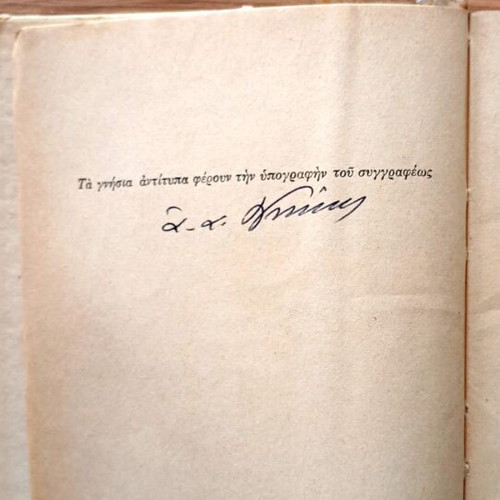 Τὰ γνήσια ἀντίτυπα φέρουν τὴν ὑπογραφὴν τοῦ συγγραφέως